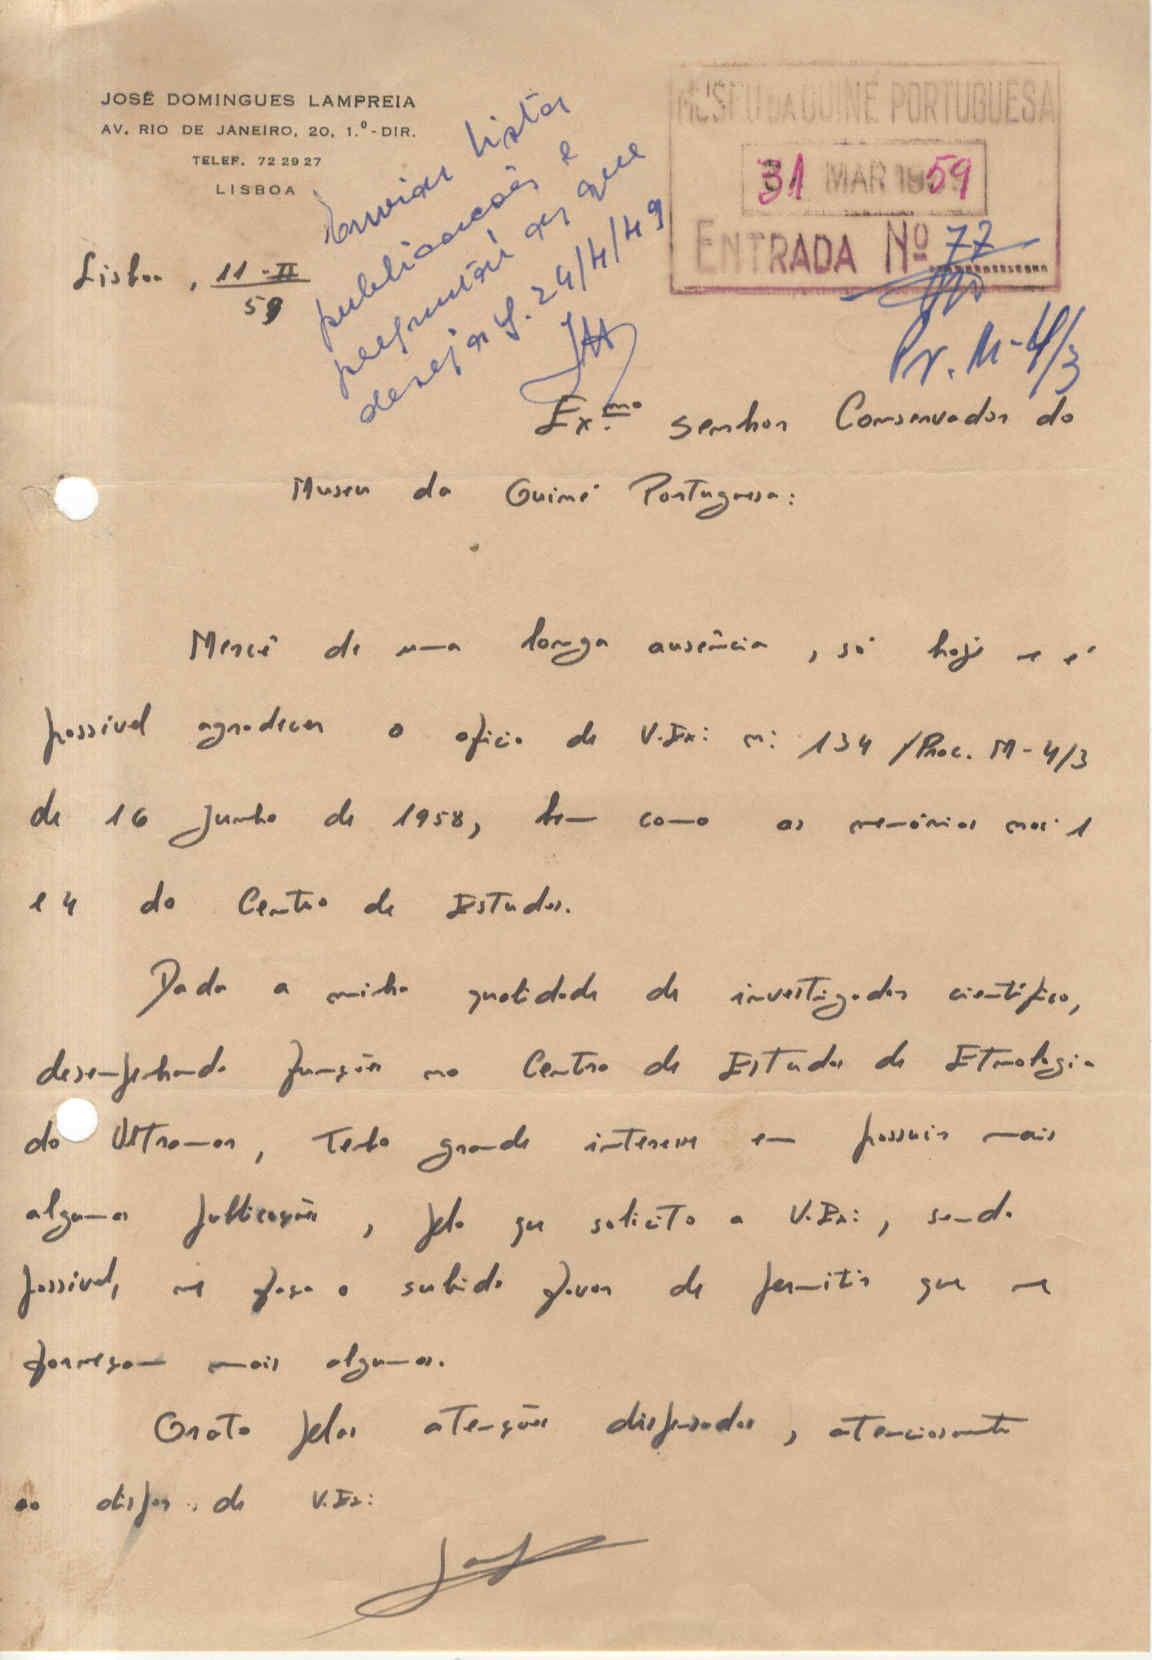 JOSÉ DOMINGUES LAMPREIA
AV. RIO DE JANEIRO, 20, 1.º-DIR.
TELEF. 72 29 27
LISBOA
MUSEU DA GUINÉ PORTUGUESA
31 MAR 1959
ENTRADA Nº 77
Pr. M-4/3
Enviar lista
publicações e
perguntar as que
deseja. 24/4/49
Lisboa, 11-II
59
Ex.mo Senhor Conservador do
Museu da Guiné Portuguesa:
Mercê de uma longa ausência, só hoje me é
possível agradecer o ofício de V.Ex: n: 134 /Proc. M-4/3
de 16 Junho de 1958, bem como as memórias nos: 1
e 4 do Centro de Estudos.
Dada a minha qualidade de investigador científico,
desempenhando funções no Centro de Estudos de Etnologia
do Ultramar, tenho grande interesse em possuir mais
algumas publicações, pelo que solicito a V.Ex:, sendo
possível, me faça o subido favor de permitir que me
forneçam mais algumas.
Grato pelas atenções dispensadas, atenciosamente
ao dispor de V.Ex: